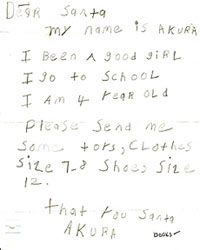 Dear Santa
my name is AKURA
I Been A good girl
I go to School
I am 4 year old
Please Send me
Some toys, Clothes
Size 7-8 Shoes Size
12.
that you Santa
AKURA
books